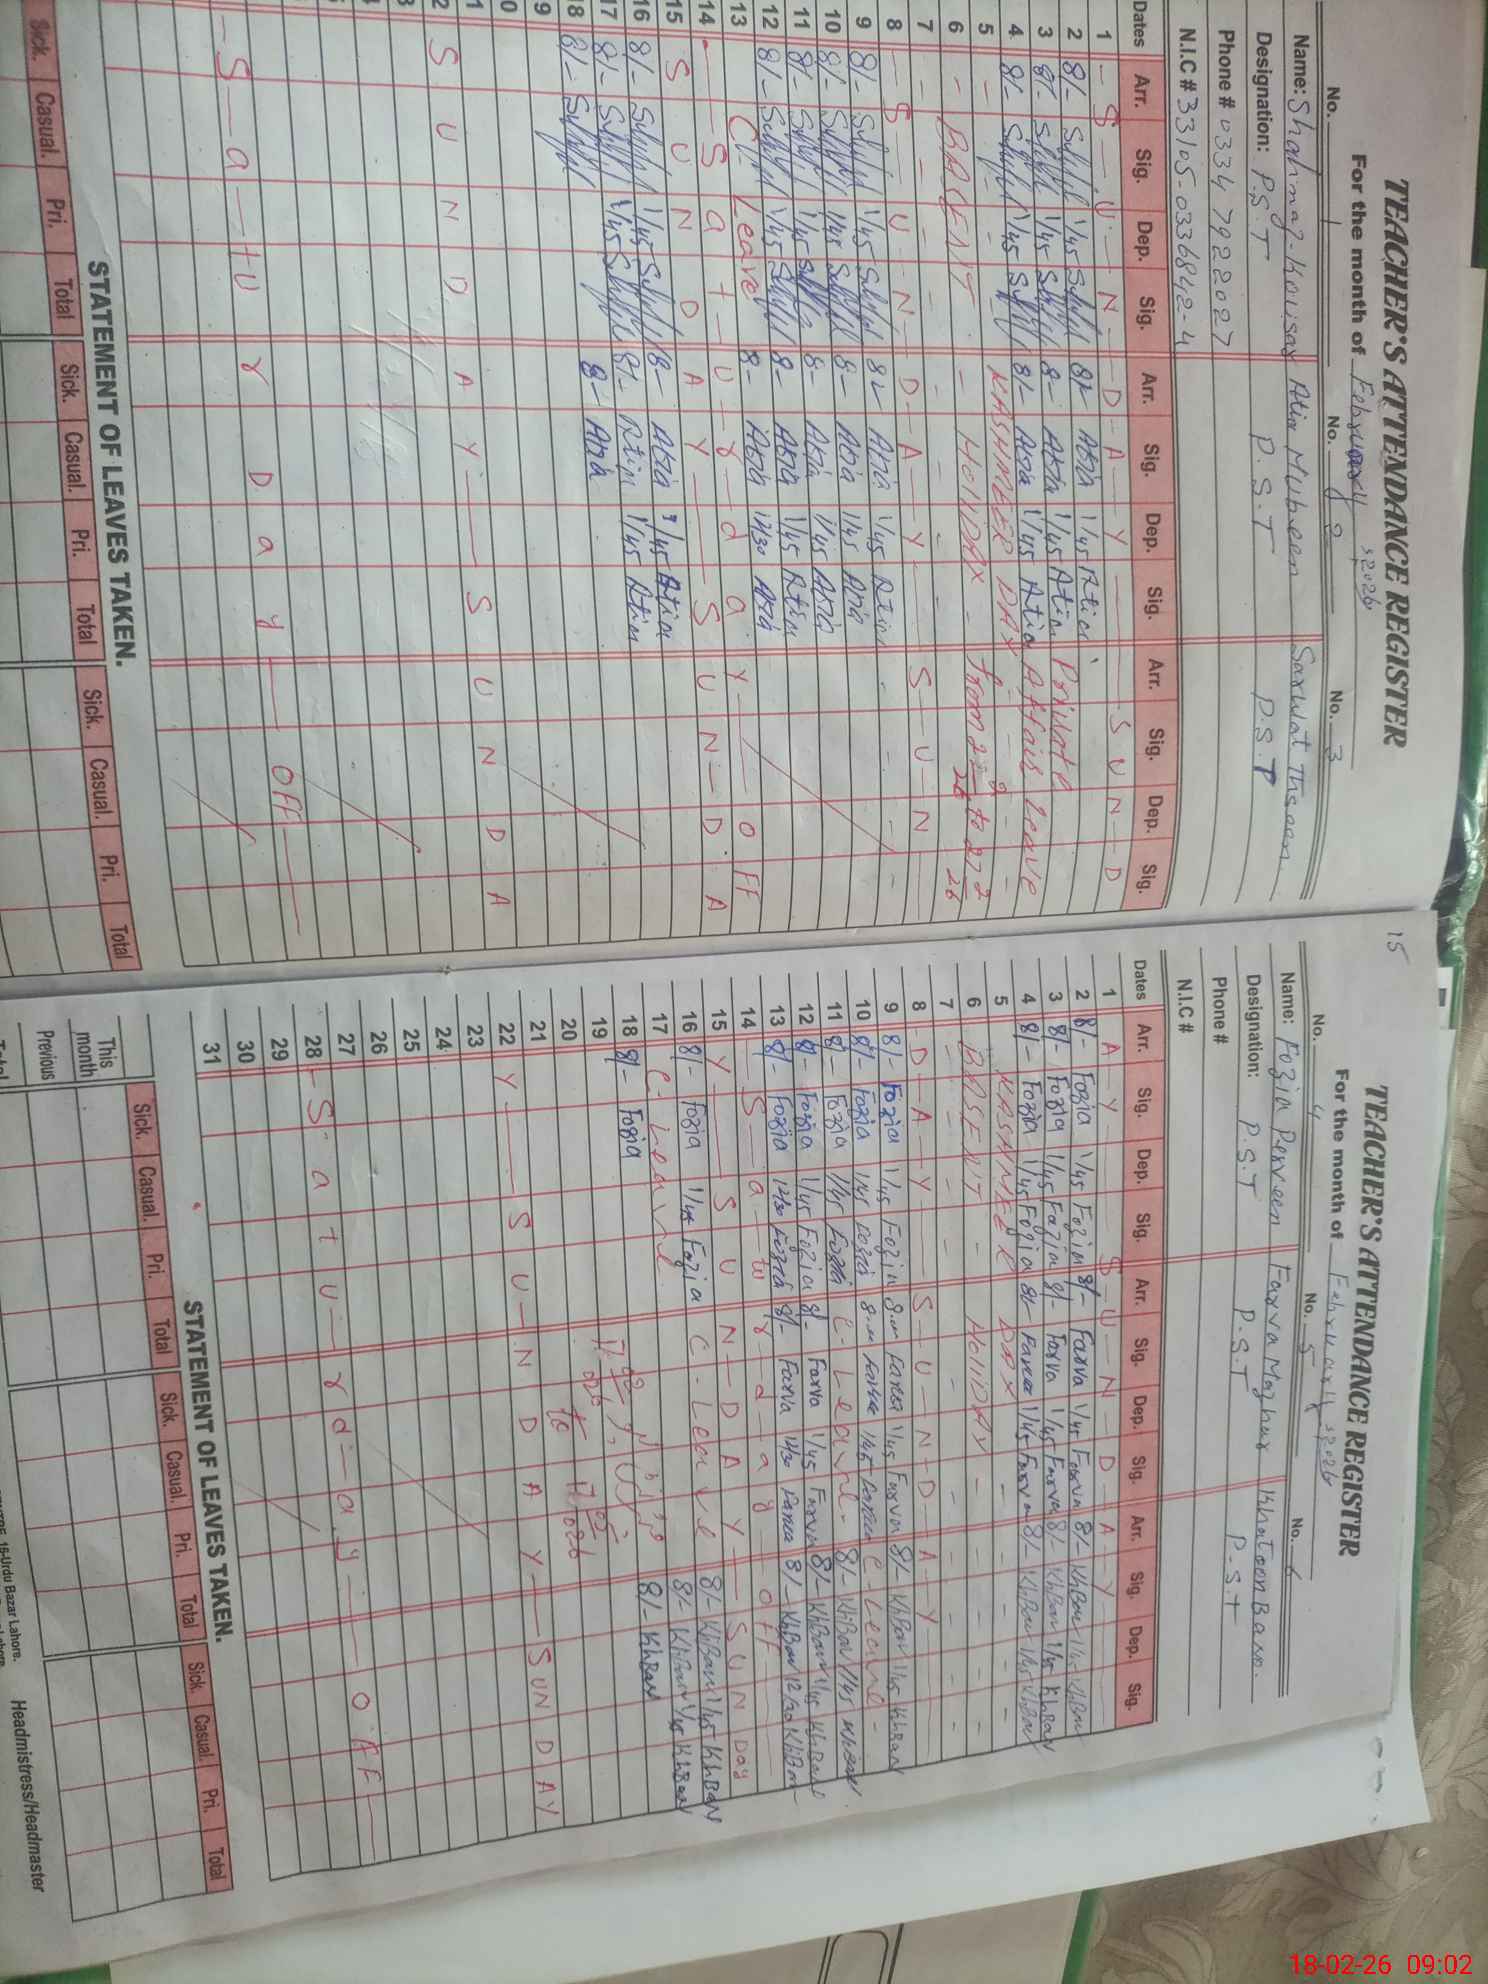 TEACHER'S ATTENDANCE REGISTER
For the month of February, 2026
No. 1 No. 2 No. 3
Name: Shahnaz Kousar Atia Mubeen Sarwat Thseen
Designation: P.S.T P.S.T P.S.T
Phone # 0334 7922027
N.I.C # 33105-0336842-4
Dates Arr. Sig. Dep. Sig. Arr. Sig. Dep. Sig. Arr. Sig. Dep. Sig.
1 S U N D A Y S U N D
2 8/- 1/45 8/- Atia 1/45 Atia Private
3 8/- 1/45 8- Atia 1/45 Atia Affairs Leave
4 8/- 1/45 8/- Atia 1/45 Atia
5 KASHMEER DAY
6 BASENT HOLIDAY from to
7
8 S U N D A Y S U N
9 8/- 1/45 8/- Atia 1/45 Atia
10 8/- 1/45 8- Atia 1/45 Atia
11 8/- 1/45 8- Atia 1/45 Atia
12 8/- 1/45 8- Atia 1/45 Atia
13 C- Leave 8- Atia 12/30 Atia
14 S a t u r d a y OFF
15 S U N D A Y S U N D A
16 8/- 1/45 8- Atia 1/45 Atia
17 8/- 1/45 8/- Atia 1/45 Atia
18 8/- 8- Atia
9
0
1
2 S U N D A Y S U N D A
S a t u r D a y OFF
STATEMENT OF LEAVES TAKEN.
Sick. Casual. Pri. Total Sick. Casual. Pri. Total Sick. Casual. Pri. Total
15
TEACHER'S ATTENDANCE REGISTER
For the month of February, 2026
No. 4 No. 5 No. 6
Name: Fozia Perveen Farva Mazhar Khatoon Bano.
Designation: P.S.T P.S.T P.S.T
Phone #
N.I.C #
Dates Arr. Sig. Dep. Sig. Arr. Sig. Dep. Sig. Arr. Sig. Dep. Sig.
1 A Y S U N D A Y
2 8/- Fozia 1/45 Fozia 8/- Farva 1/45 Farva 8/- KhBan 1/45 KhBan
3 8/- Fozia 1/45 Fozia 8/- Farva 1/45 Farva 8/- KhBan 1/45 KhBan
4 8/- Fozia 1/45 Fozia 8/- Farva 1/45 Farva 8/- KhBan 1/45 KhBan
5 KASHMEER DAY
6 BASENT HOLIDAY
7
8 D A Y S U N D A Y
9 8/- Fozia 1/45 Fozia Farva 1/45 Farva 8/- KhBan 1/45 KhBan
10 8/- Fozia 1/45 Fozia Farva 1/45 Farva C-Leave
11 8/- Fozia 1/45 Fozia C-Leave 8/- KhBan 1/45 KhBan
12 8/- Fozia 1/45 Fozia 8/- Farva 1/45 Farva 8/- KhBan 1/45 KhBan
13 8/- Fozia 12/30 Fozia 8/- Farva 12/30 Farva 8/- KhBan 12/30 KhBan
14 S a tu r d a y OFF
15 Y S U N D A Y SUN Day
16 8/- Fozia 1/45 Fozia C-Leave 8/- KhBan 1/45 KhBan
17 C-Leave 8/- KhBan 1/45 KhBan
18 8/- Fozia 8/- KhBan
19
20 to
21
22 Y S U N D A Y SUNDAY
23
24
25
26
27
28 S a t u r d a y OFF
29
30
31
STATEMENT OF LEAVES TAKEN.
Sick. Casual. Pri. Total Sick. Casual. Pri. Total Sick. Casual. Pri. Total
This month
Previous
Total
16-Urdu Bazar Lahore.
Headmistress/Headmaster
18-02-26 09:02